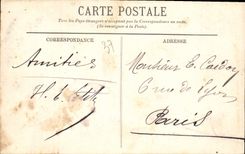 CARTE POSTALE
Tous les Pays étrangers n'acceptent pas la Correspondance au recto.
(Se renseigner à la Poste).
CORRESPONDANCE
ADRESSE
Amitiés
Monsieur E.
6 rue de
Paris